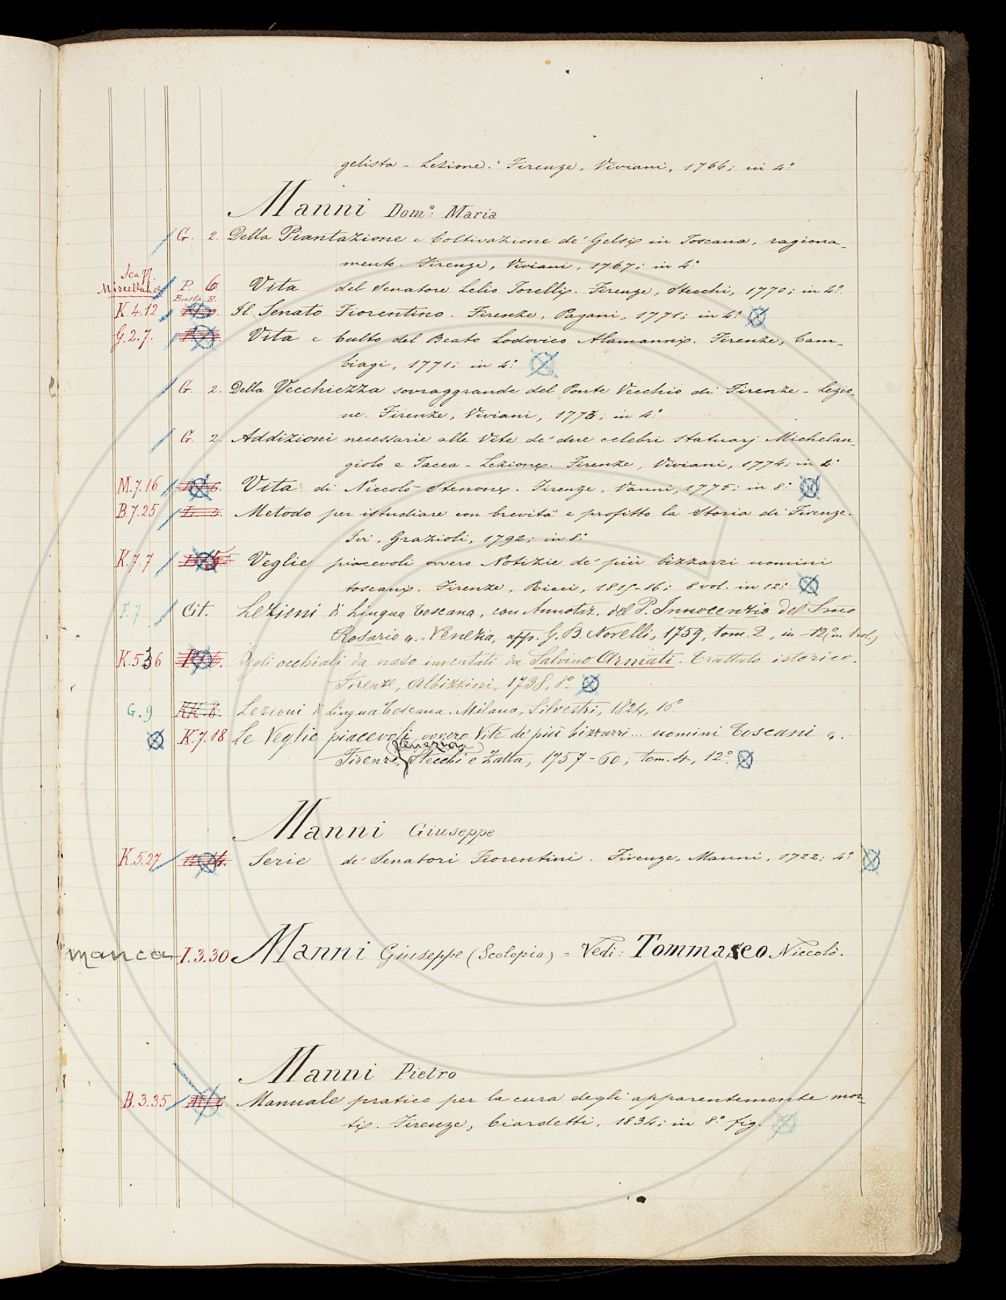 gelista - Lezione. Firenze, Viviani, 1764; in 4°
Manni Dom.° Maria
G. 2. Della Piantazione e Coltivazione de' Gelsi in Toscana, ragiona-
mento. Firenze, Viviani, 1767; in 4°
Scaff.
Miscellanie P. 6 Vita del Senatore Lelio Torelli. Firenze, Stecchi, 1770; in 4°
Busta B.
K.4.12 Il Senato Fiorentino. Firenze, Pagani, 1771; in 4°
G.2.7. Vita e Culto del Beato Lodovico Alamanni. Firenze, Cam-
biagi, 1771; in 4°
G. 2. Della Vecchiezza sovraggrande del Ponte Vecchio di Firenze - Lezio-
ne. Firenze, Viviani, 1773; in 4°
G. 2. Addizioni necessarie alle Vite de' due celebri statuarj Michelan
giolo e Tacca - Lezione. Firenze, Viviani, 1774; in 4°
M.7.16 Vita di Niccolò Stenone. Firenze, Vanni, 1775; in 8°
B.7.25 Metodo per istudiare con brevità e profitto la Storia di Firenze.
Ivi, Grazioli, 1792; in 8°
K.7.7 Veglie piacevoli ovvero Notizie de' più bizzarri uomini
toscani. Firenze, Ricci, 1815-16; 8 vol. in 12°
F.7 Cit. Lezioni di Lingua Toscana, con Annotaz. del P. Innocenzio del Smo
Rosario. Venezia, app. G. B. Novelli, 1759, tom. 2, in-12°, in 1 vol.)
K.5.36 Degli occhiali da naso inventati da Salvino Armati. Trattato istorico.
Firenze, Albizzini, 1738, 8°
G.9 Lezioni di Lingua Toscana. Milano, Silvestri, 1824, 16°
K.7.18 Le Veglie piacevoli ovvero Vite de' più bizzarri... uomini Toscani
(Venezia)
Firenze, Stecchi e Zatta, 1757-60; tom. 4, 12°
Manni Giuseppe
K.5.27 Serie de' Senatori Fiorentini. Firenze, Manni, 1722; 4°
manca I.3.30 Manni Giuseppe (Scolopio) = Vedi: Tommaseo Niccolò.
Manni Pietro
B.3.35 Manuale pratico per la cura degli apparentemente mor-
ti. Firenze, Ciardetti, 1834; in 8° fig.
C